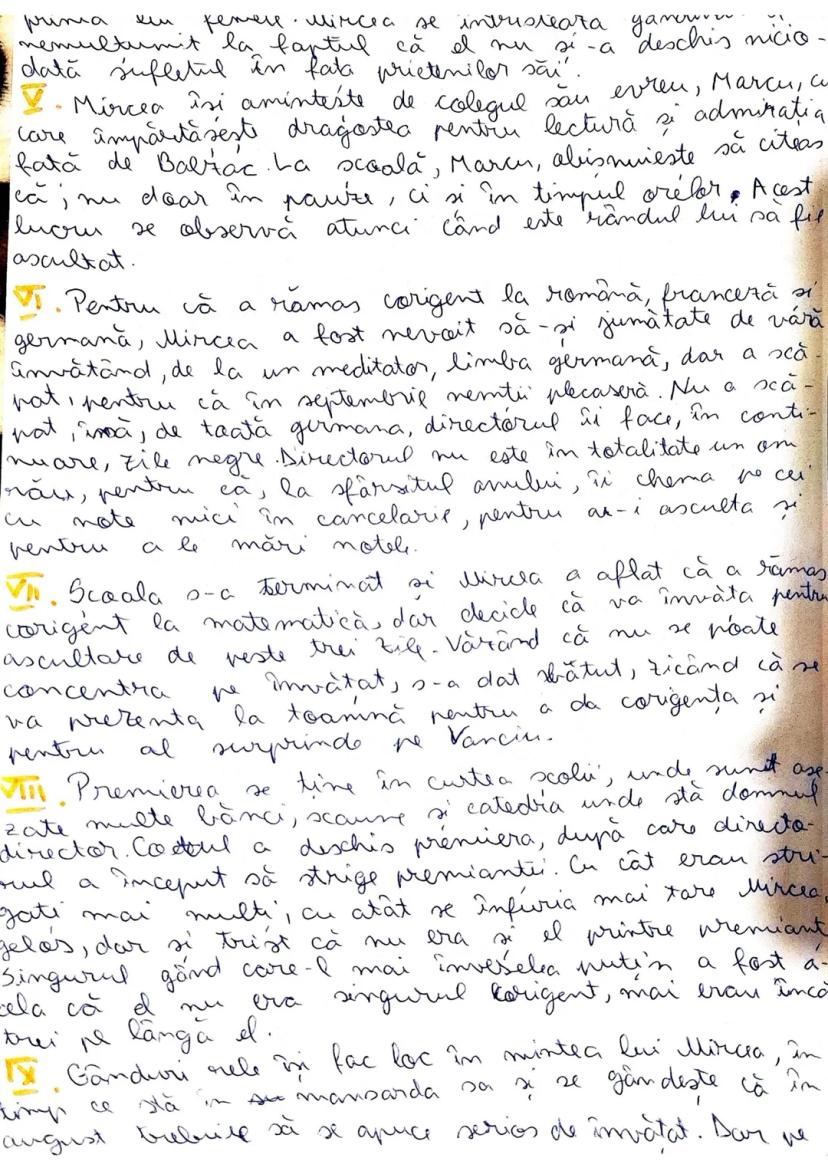 prima lui femeie. Mircea se întristează
nemultumit la faptul că el nu si-a deschis nicio-
dată sufletul în fata prietenilor săi.
V. Mircea îsi aminteste de colegul său evreu, Marcu, cu
care împărtăsesti dragostea pentru lectură si admiratia
fată de Balzac. La scoală, Marcu, obisnuieste să citeas
că, nu doar în pauze, ci si în timpul orelor. Acest
lucru se observă atunci când este rândul lui să fie
ascultat.
VI. Pentru că a rămas corigent la română, franceză si
germană, Mircea a fost nevoit să-si jumătate de vără
învătând, de la un meditator, limba germană, dar a scă-
pat, pentru că în septembrie nemtii plecaseră. Nu a scă-
pat, însă, de toată germana, directorul îi face, în conti-
nuare, zile negre. Directorul nu este în totalitate un om
rău, pentru că, la sfârsitul anului, îi chema pe cei
cu note mici în cancelarie, pentru a-i asculta si
pentru a le mări notele.
VII. Scoala s-a terminat si Mircea a aflat că a rămas
corigent la matematică, dar decide că va învăta pentru
ascultare de peste trei zile. Vărând că nu se poate
concentra pe învătat, s-a dat bătut, zicând că se
va prezenta la toamnă pentru a da corigența și
pentru al surprinde pe Vanciu.
VIII. Premierea se ține în curtea scolii, unde sunt ase-
zate multe bănci, scaune si catedra unde stă domnul
director. Corul a deschis premiera, după care directo-
rul a început să strige premiantii. Cu cât erau stri-
gati mai multi, cu atât se înfuria mai tare Mircea,
gelos, dar si trist că nu era si el printre premiant
Singurul gând care-l mai înveselea putin a fost a-
cela că el nu era singurul corigent, mai erau încă
trei pe lângă el.
IX. Gânduri rele îsi fac loc în mintea lui Mircea, în
timp ce stă în mansarda sa și se gândește că în
august trebuie să se apuce serios de învățat. Dar pe